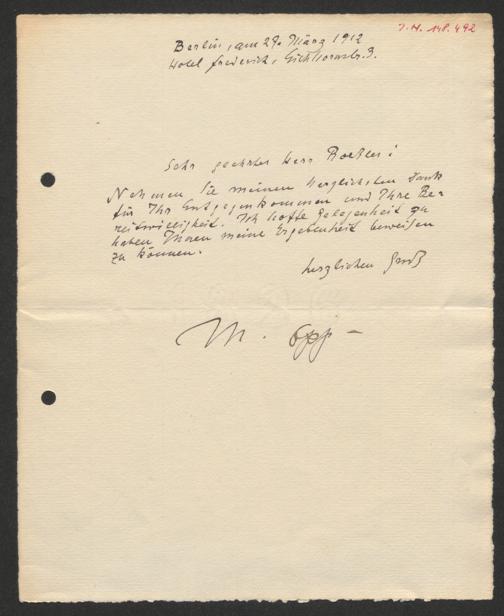 J.N. 148.492
Berlin, am 29. März 1912
Hotel Frederich, Eichhornstr. 3.
Sehr geehrter Herr Roessler!
Nehmen Sie meinen herzlichsten Dank
für Ihr Entgegenkommen und Ihre Be-
reitwilligkeit. Ich hoffe Gelegenheit zu
haben Ihnen meine Ergebenheit beweisen
zu können.
herzlichen Gruß
M. Opp –